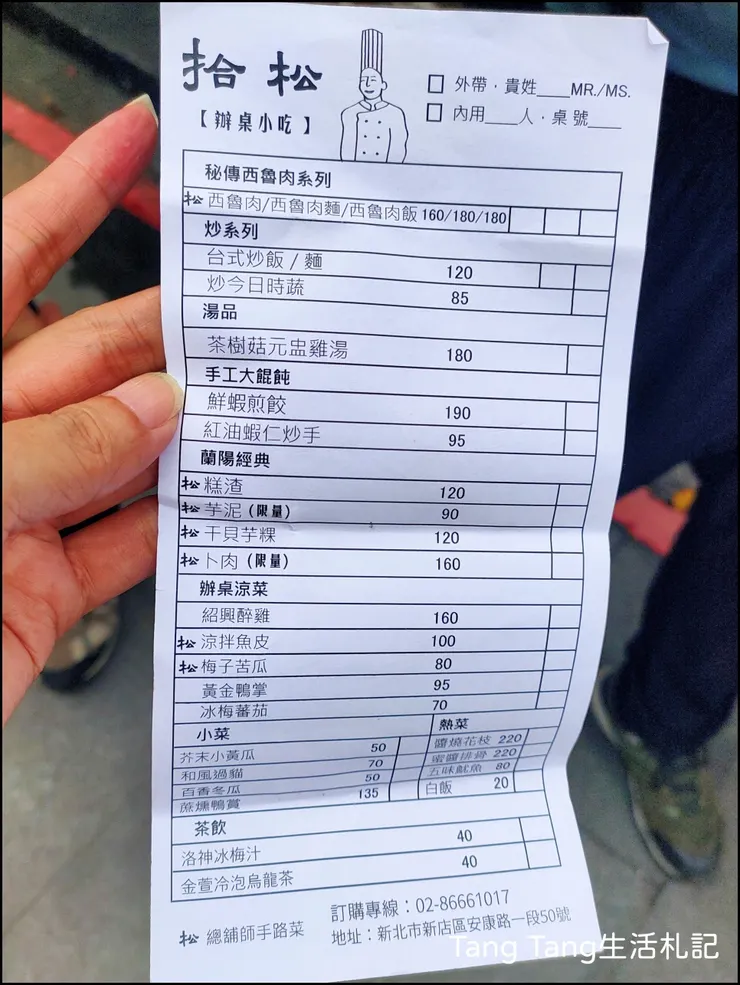 拾松
【辦桌小吃】
□ 外帶，貴姓____MR./MS.
□ 內用____人，桌號____
秘傳西魯肉系列
松 西魯肉/西魯肉麵/西魯肉飯 160/180/180
炒系列
台式炒飯 / 麵 120
炒今日時蔬 85
湯品
茶樹菇元盅雞湯 180
手工大餛飩
鮮蝦煎餃 190
紅油蝦仁炒手 95
蘭陽經典
松 糕渣 120
松 芋泥 (限量) 90
松 干貝芋粿 120
松 卜肉 (限量) 160
辦桌涼菜
紹興醉雞 160
松 涼拌魚皮 100
松 梅子苦瓜 80
黃金鴨掌 95
冰梅蕃茄 70
小菜
芥末小黃瓜 50
和風過貓 70
百香冬瓜 50
蔗燻鴨賞 135
熱菜
醬燒花枝 220
蜜醬排骨 220
五味魷魚 80
白飯 20
茶飲
洛神冰梅汁 40
金萱冷泡烏龍茶 40
松 總舖師手路菜
訂購專線：02-86661017
地址：新北市新店區安康路一段50號
Tang Tang生活札記